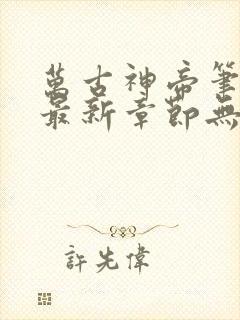 萬古神帝筆
最新章節無
許先偉